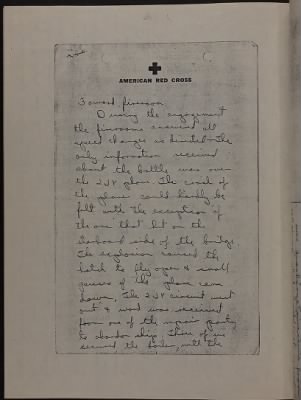 AMERICAN RED CROSS
3 forward fireroom
During the engagement
the firerooms answered all
speed changes as directed. The
only information received
about the battle was over
the 2JV phone. The crash of
the plane could hardly be
felt with the exception of
the one that hit on the
starboard side of the bridge.
The explosion caused the
hatch to fly open & small
pieces of the plane came
down. The 2JV circuit went
out & word was received
from one of the repair party
to abandon ship. Three of us
secured the boiler, with the